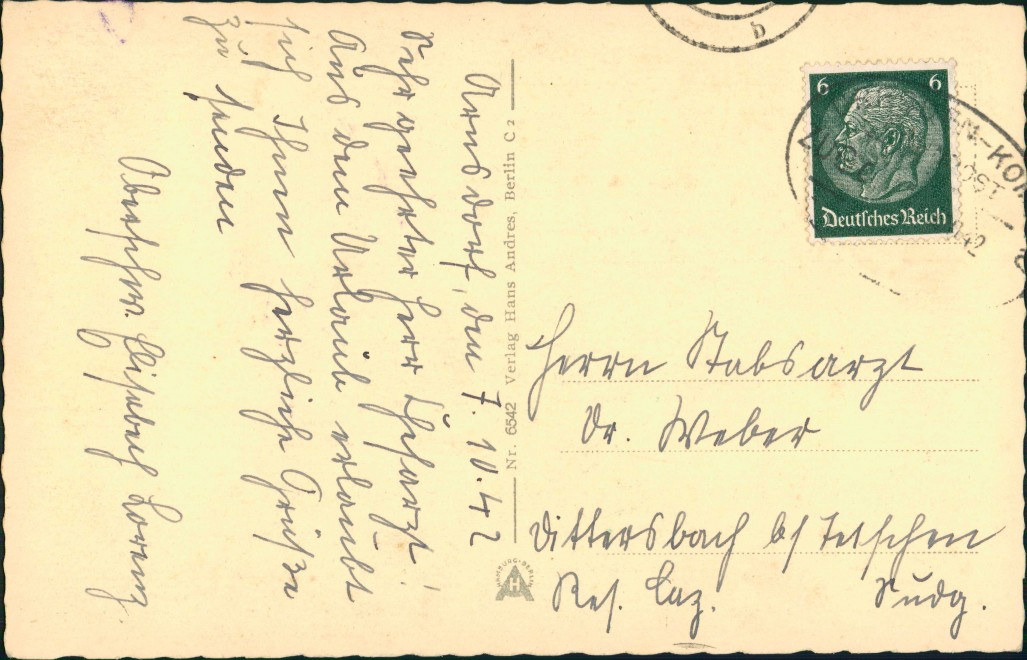 Arnsdorf, den 7.10.42
Sehr geehrter Herr Chefarzt!
Aus dem Urlaub erlaubt
sich Ihnen herzliche Grüße
zu senden
Oberschw. Elisabeth Lorenz
Nr. 6542 Verlag Hans Andres, Berlin C 2
HAMBURG-BERLIN
b
6 6
Deutsches Reich
Herrn Stabsarzt
Dr. Weber
Dittersbach b/ Tetschen
Res. Laz. Sudg.